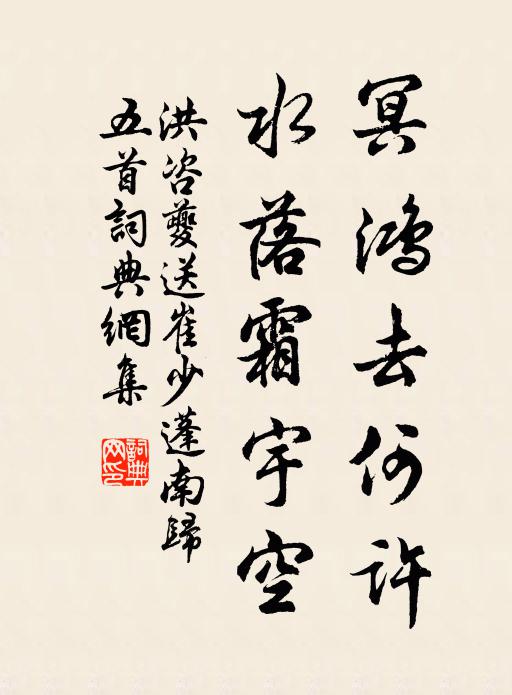 冥鴻去何許
水落霜宇空
洪咨夔送崔少蓬南歸
五首詞典網集
詞典
网印